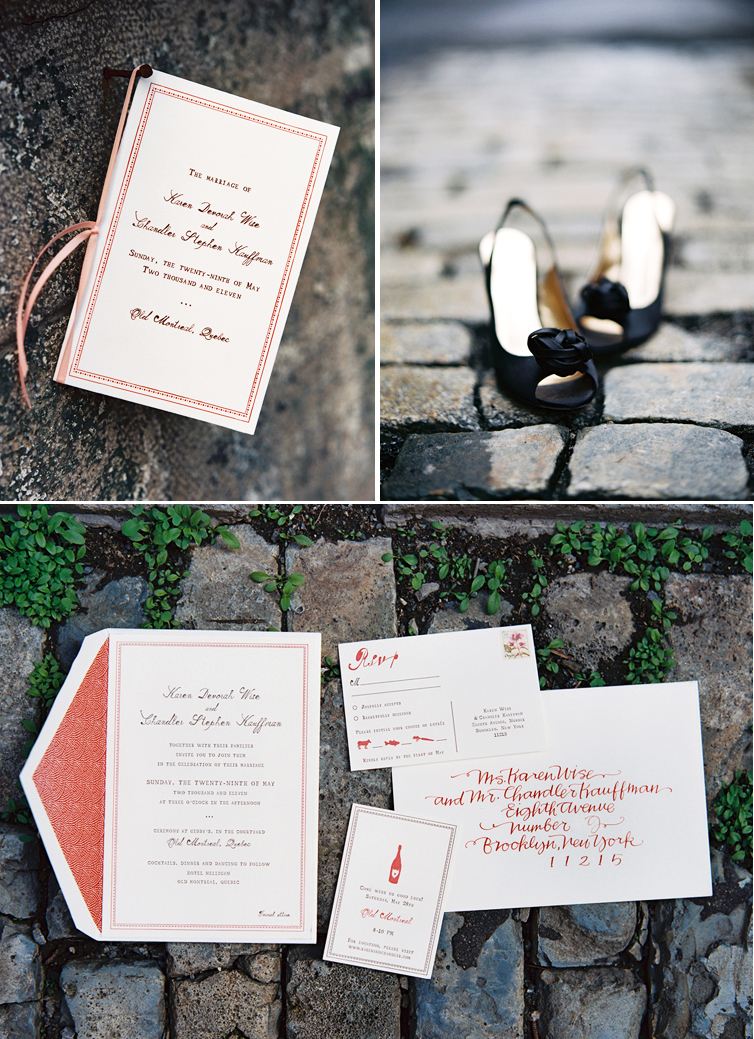 The marriage of
Karen Devorah Wise
and
Chandler Stephen Kauffman
Sunday, the twenty-ninth of May
Two thousand and eleven
Old Montreal, Quebec
Karen Devorah Wise
and
Chandler Stephen Kauffman
together with their families
invite you to join them
in the celebration of their marriage
Sunday, the twenty-ninth of May
two thousand and eleven
at three o'clock in the afternoon
Ceremony at Gibby's, in the courtyard
Old Montreal, Quebec
Cocktails, dinner and dancing to follow
Hotel Nelligan
Old Montreal, Quebec
Formal attire
Rsvp
M
Joyfully accepts
Regretfully declines
Please initial your choice of entrée
Kindly reply by the start of May
Karen Wise
& Chandler Kauffman
Eighth Avenue, Number
Brooklyn, New York
11215
Come wish us good luck!
Saturday, May 28th
Old Montreal
8-10 PM
For location, please visit
Ms. Karen Wise
and Mr. Chandler Kauffman
Eighth Avenue
Number
Brooklyn, New York
11215